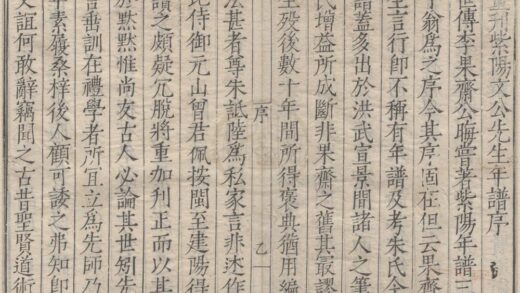 重刊紫陽文公先生年譜序
世傳李果齋公晦嘗著紫陽年譜三
了翁爲之序今其序固在但云果齋
生言行卽不稱有年譜及考朱氏今
譜蓋多出於洪武宣景間諸人之筆
民增益所成斷非果齋之舊其最謬
生歿後數十年間所得褒典猶用編
序
乙
法甚者尊朱詆陸爲私家言非述作
比侍御元山曾君佩按閩至建陽得
讀之頗疑冗脫將重加刋正而以其
於黙黙惟尚友古人必論其世矧先
言垂訓在禮學者所宜立爲先師乃
平素履桑梓後人顧可諉之弗知卽
文誼何敢辭竊聞之古昔聖賢道術